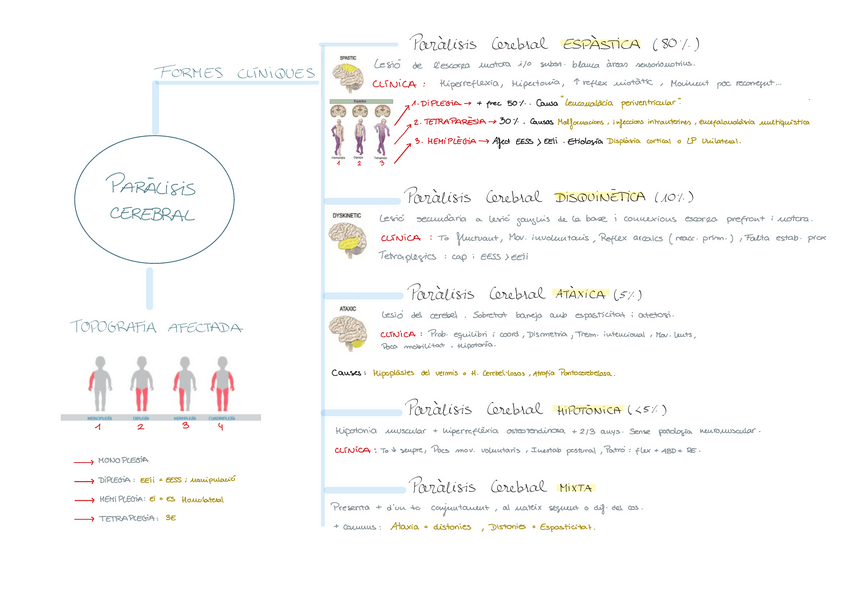 FORMES CLÍNIQUES
PARÀLISIS
CEREBRAL
TOPOGRAFIA AFECTADA
MONOPLEGIA DIPLEGIA HEMIPLEGIA
1 2 3 4
→ MONOPLEGIA
→ DIPLEGIA: EEII + EESS ↓ manipulació
→ HEMIPLEGIA: EI + ES Homolateral
→ TETRAPLEGIA: 3E
Paràlisis Cerebral ESPÀSTICA (80%)
SPASTIC
Lesió de l'escorça motora i/o subst. blanca àrees sensoriomotrius.
CLÍNICA: Hiperreflexia, Hipertonia, ↑ reflex miotàtic, Moviment poc
1. DIPLEGIA → + frec 50%. Causa "Leucomalàcia periventricular".
2. TETRAPARÈSIA → 30%. Causes Malformacions, infeccions intrauterines, encefalomalàcia multiquística
3. HEMIPLÈGIA → Afect EESS > EEII. Etiologia Displàsia cortical o LP Unilateral.
1 2 3
Paràlisis Cerebral DISQUINÈTICA (10%)
DYSKINETIC
Lesió secundària a lesió ganglis de la base i connexions escorça prefront i motora.
CLÍNICA: To fluctuant, Mov. involuntaris, Reflex arcaics (reacc. prim.), Falta estab. prox
Tetraplegics: cap i EESS > EEII
Paràlisis Cerebral ATÀXICA (5%)
ATAXIC
Lesió del cerebel. Sobretot barreja amb espasticitat i atetosi.
CLÍNICA: Prob. equilibri i coord, Dismetria, Trem. intencional, Mov. lents,
Poca mobilitat. Hipotonia.
Causes: Hipoplàsies del vermis o H. Cerebel·losos, Atrofia Pontocerebelosa.
Paràlisis Cerebral HIPOTÒNICA (<5%)
Hipotonia muscular + hiperreflèxia osteotendinosa + 2/3 anys. Sense patologia neuromuscular.
CLÍNICA: To ↓ sempre, Pocs mov. voluntaris, Inestab postural, Patró: flex + ABD + RE.
Paràlisis Cerebral MIXTA
Presenta + d'un to conjuntament, al mateix segment o dif. del cos.
+ comuns: Ataxia + distonies, Distonies + Espasticitat.